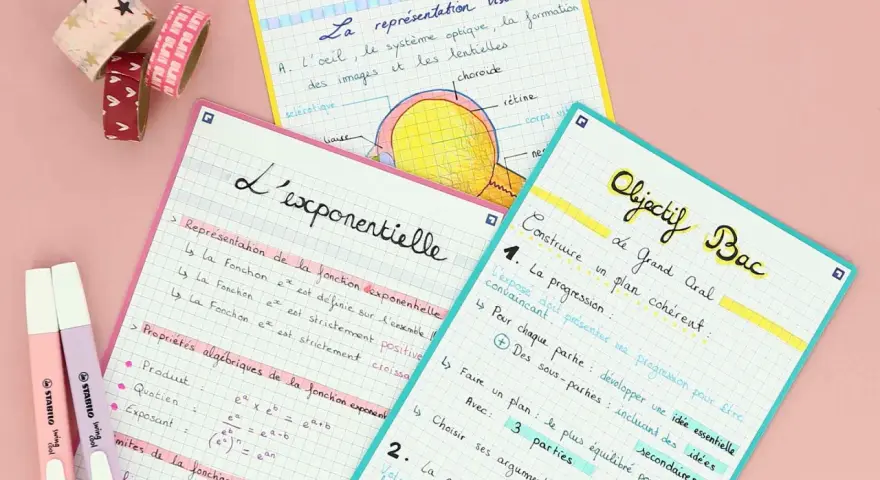 La représentation
A. L'oeil, le système optique, la formation
des images et les lentilles
choroïde
sclérotique
rétine
corps
L'exponentielle
> Représentation de la fonction exponentielle
↳ La fonction eˣ est définie sur l'ensemble
↳ La fonction eˣ est strictement positive
↳ La fonction eˣ est strictement croissa
> Propriétés algébriques de la fonction exponent
Produit : eᵃ × eᵇ = eᵃ⁺ᵇ
Quotien : eᵃ/eᵇ = eᵃ⁻ᵇ
Exposant : (eᵃ)ⁿ = eᵃⁿ
imites de la fonction
Objectif Bac
Le Grand Oral
Construire un plan cohérent :
1. La progression :
L'exposé doit présenter une progression pour être
convaincant.
↳ Pour chaque partie : développer une idée essentielle
+ Des sous-parties : incluant des idées
secondaires
↳ Faire un plan : le plus équilibré
Avec : 3 parties
↳ Choisir ses argum
2. La
STABILO
swing cool
STABILO
swing cool